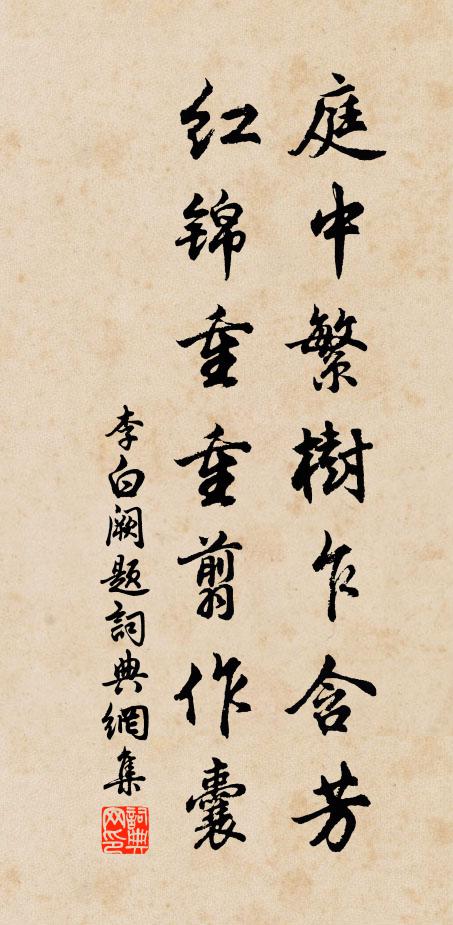 庭中繁樹乍含芳
紅錦重重翦作囊
李白闕題詞典網集
詞典網印